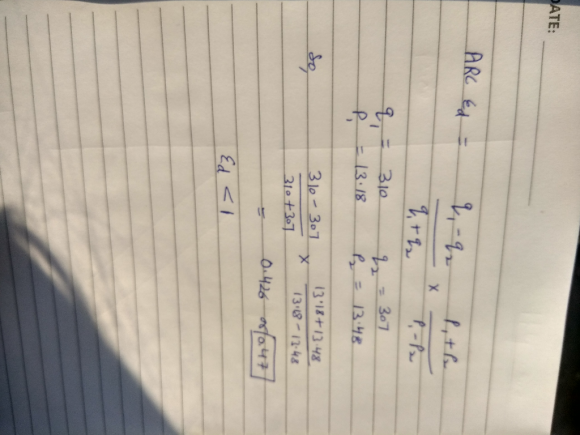 DATE:
ARC Ed = q1 - q2 / q1 + q2 × P1 + P2 / P1 - P2
q1 = 310 q2 = 307
P1 = 13.18 P2 = 13.48
So,
310 - 307 / 310 + 307 × 13.18 + 13.48 / 13.18 - 13.48
= 0.426 or 0.47
Ed < 1